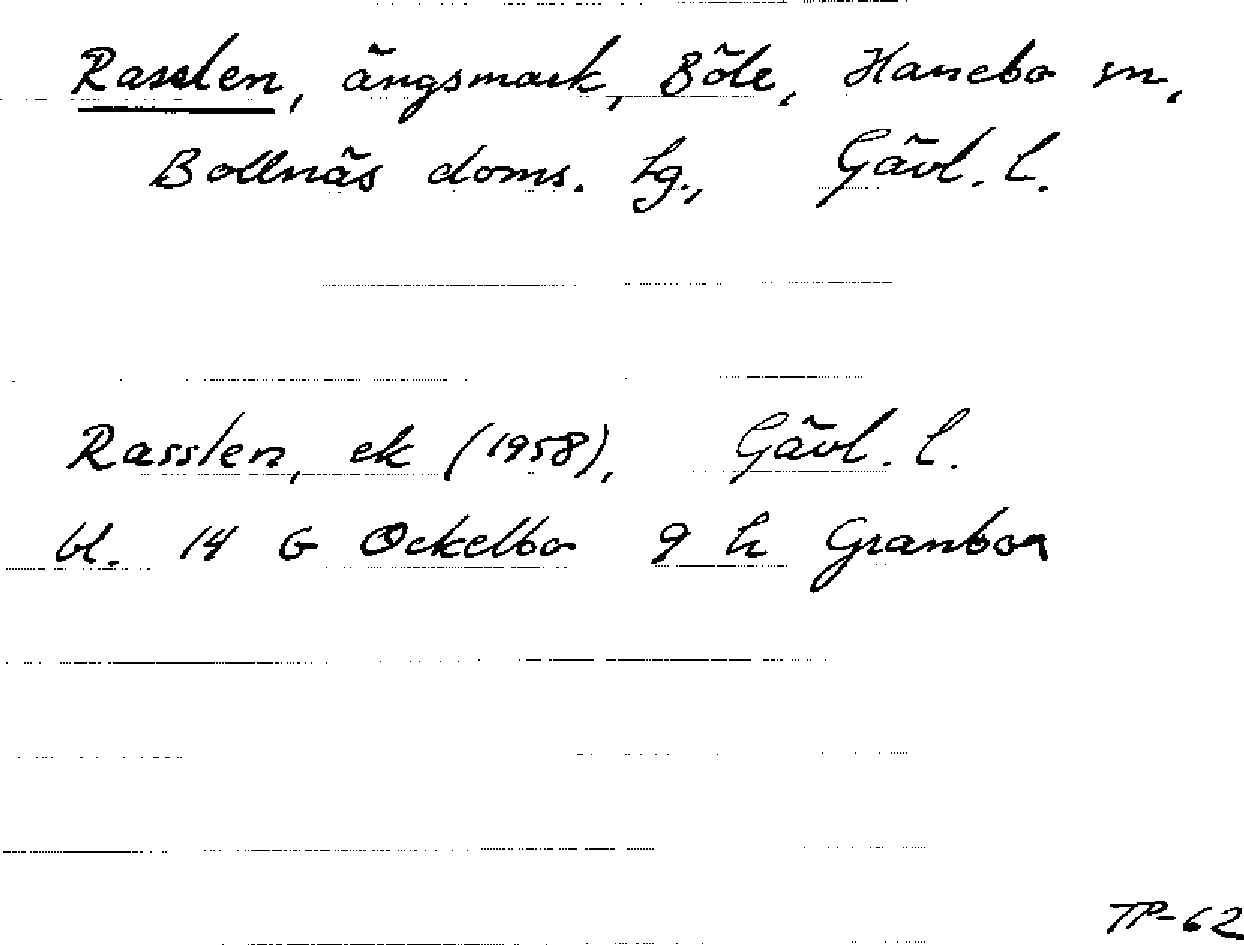 Rasslen, ängsmark, Böle, Hanebo sn,
Bollnäs doms. hg., Gävl. l.
Rasslen, ek (1958), Gävl. l.
bl. 14 G Ockelbo 9 h Granbon
TP-62